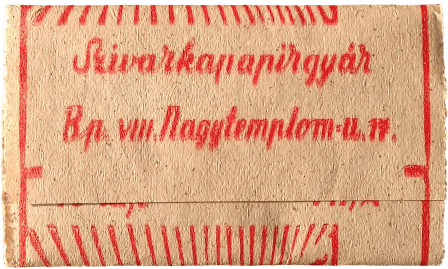 Szivarkapapirgyár
Bp. VIII. Nagytemplom-u. 17.